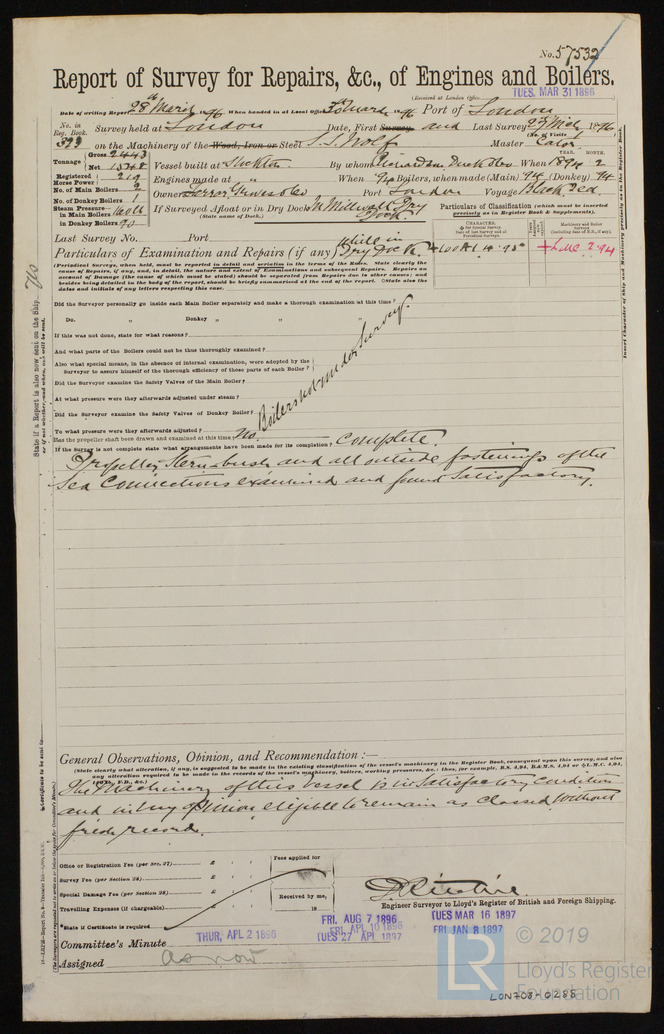 No. 57532
Report of Survey for Repairs, &c., of Engines and Boilers.
(Received at London Office
TUES. MAR 31 1896
Date of writing Report 28th March 1896 When handed in at Local Office 30 March 1896 Port of London
No. in Reg. Book. Survey held at London Date, First Survey and Last Survey 23 Mch 1896
(No. of Visits
393 on the Machinery of the Wood, Iron or Steel S.S. Wolf Master
Tonnage Gross 2443
Net 1548
Vessel built at Stockton By whom Richardson Duck & Co When 1894 2
YEAR. MONTH.
Registered Horse Power 219
Engines made at " When 94 Boilers, when made (Main) 94 (Donkey) 94
No. of Main Boilers 2
No. of Donkey Boilers 1
Owners Port London Voyage Black Sea
Steam Pressure in Main Boilers 160 lb
in Donkey Boilers 90
If Surveyed Afloat or in Dry Dock In Millwall Dry Dock
(State name of Dock.)
Particulars of Classification (which must be inserted precisely as in Register Book & Supplements).
Last Survey No. Port
Particulars of Examination and Repairs (if any) While in Dry Dock
CHARACTER.
Machinery and Boiler Surveys
+LMC 2.94
(Periodical Surveys, when held, must be reported in detail and seriatim in the terms of the Rules. State clearly the cause of Repairs, if any, and, in detail, the nature and extent of Examinations and subsequent Repairs. Repairs on account of Damage (the cause of which must be stated) should be separated from Repairs due to other causes; and besides being detailed in the body of the report, should be briefly summarised at the end of the report. State also the dates and initials of any letters respecting this case.
Did the Surveyor personally go inside each Main Boiler separately and make a thorough examination at this time?
Do. " Donkey " " "
If this was not done, state for what reasons?
And what parts of the Boilers could not be thus thoroughly examined?
Also what special means, in the absence of internal examination, were adopted by the Surveyor to assure himself of the thorough efficiency of those parts of each Boiler?
Did the Surveyor examine the Safety Valves of the Main Boiler?
At what pressure were they afterwards adjusted under steam?
Did the Surveyor examine the Safety Valves of Donkey Boiler?
To what pressure were they afterwards adjusted?
Boilers not under survey.
Has the propeller shaft been drawn and examined at this time no.
If the Survey is not complete state what arrangements have been made for its completion? Complete.
Propeller, Stern bush and all outside fastenings of the
Sea Connections examined and found Satisfactory.
General Observations, Opinion, and Recommendation:—
(State clearly what alteration, if any, is suggested to be made in the existing classification of the vessel's machinery in the Register Book, consequent upon this survey, and also any alteration required to be made in the records of the vessel's machinery, boilers, working pressures, &c.; thus, for example, B.S. 4,94, B.&M.S. 4,94 or L.M.C. 4,94,
The Machinery of this vessel is in Satisfactory Condition
and in my opinion eligible to remain as classed without
fresh record.
Office or Registration Fee (per Sec. 27) £ : :
Survey Fee (per Section 28) £ : :
Special Damage Fee (per Section 28) £ : :
Travelling Expenses (if chargeable) £ : :
Fees applied for
Received by me,
18
Engineer Surveyor to Lloyd's Register of British and Foreign Shipping.
*State if Certificate is required
FRI. AUG 7 1896
FRI. APL 10 1896
TUES 27 APL 1897
TUES MAR 16 1897
FRI JAN 8 1897
Committee's Minute THUR. APL 2 1896
Assigned as now
LR © 2019
Lloyd's Register
Foundation
LON708-0288